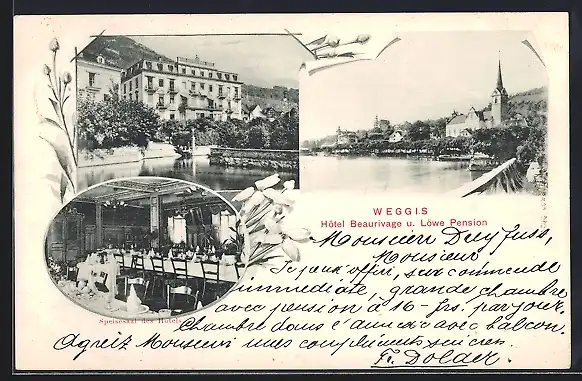 WEGGIS
Hôtel Beaurivage u. Löwe Pension
Speisesaal des Hôtels
Monsieur Dreyfuss,
Monsieur
Je peux offrir, sur commende
immediate, grande chambre
avec pension à 16- frs. par jour.
Chambre dans l'annexe avec balcon.
Agreez Monsieur mes compliments sincères.
Fr. Dolder.